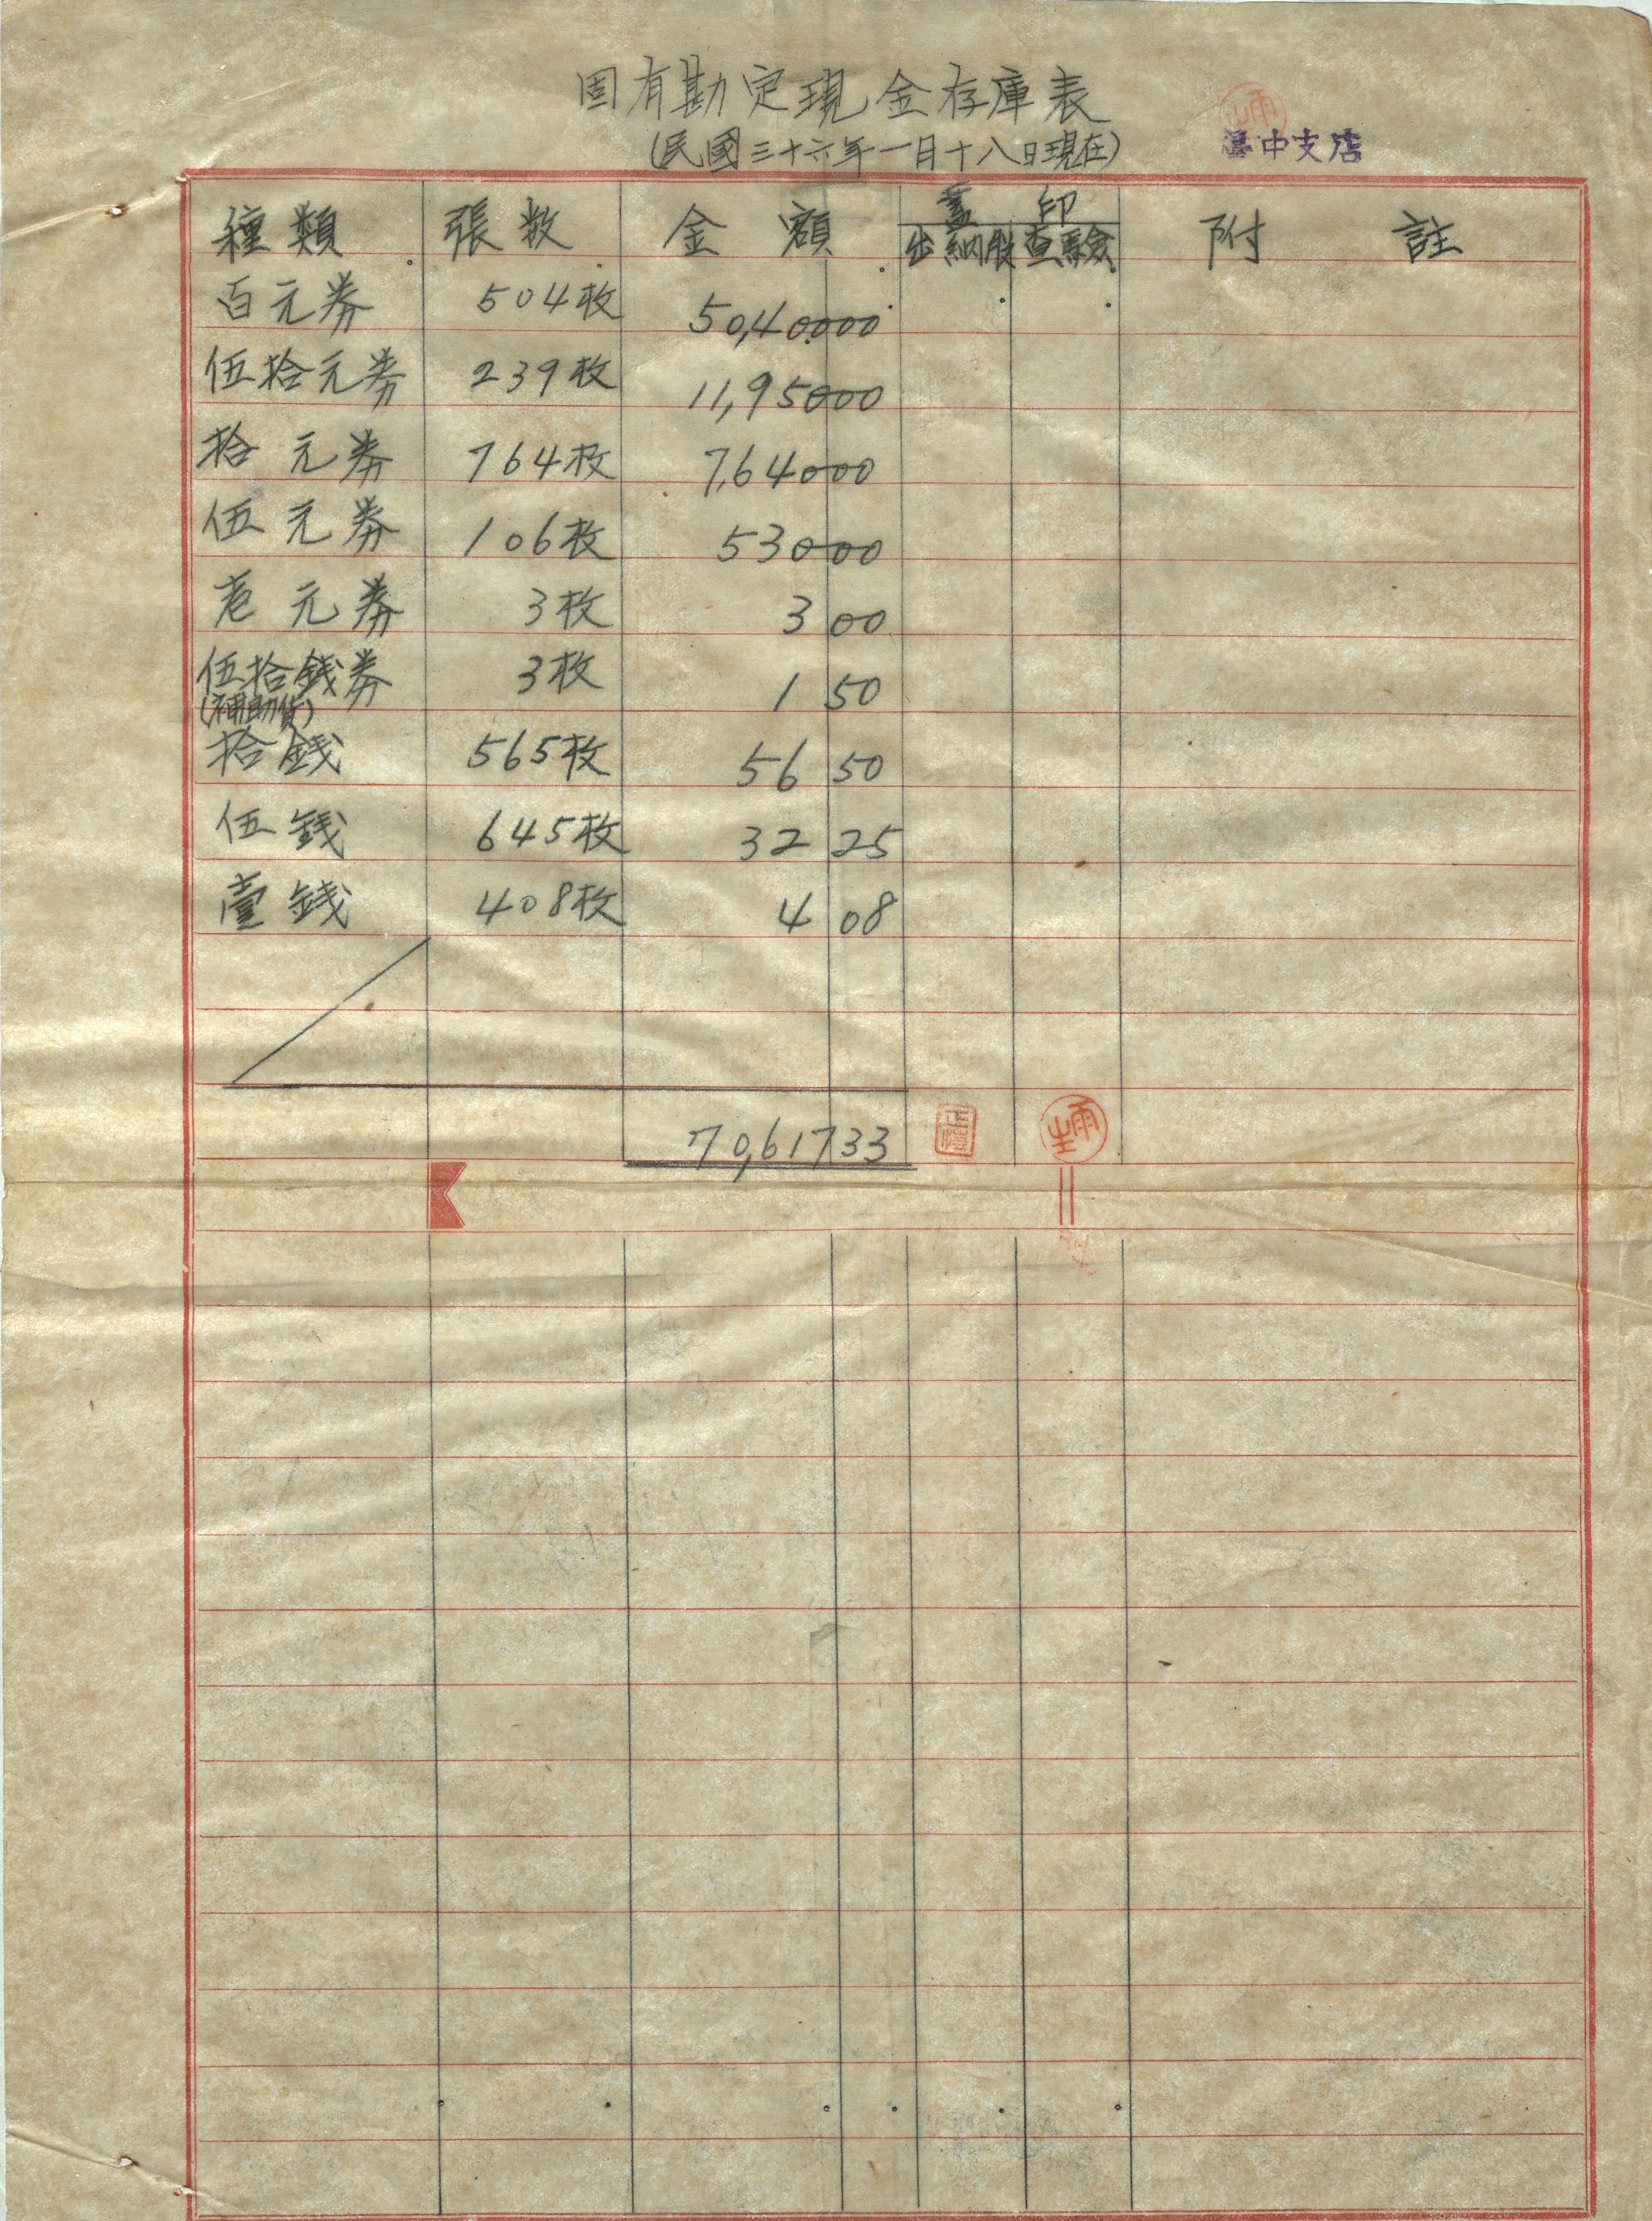 固有勘定現金存庫表
(民國三十六年一月十八日現在)
臺中支店
種類 張数 金額 蓋印 附註
出納股 查驗
百元券 504枚 50,400 00
伍拾元券 239枚 11,950 00
拾元券 764枚 7,640 00
伍元券 106枚 530 00
壱元券 3枚 3 00
伍拾銭券 3枚 1 50
(補助貨)
拾銭 565枚 56 50
伍銭 645枚 32 25
壹銭 408枚 4 08
70,617 33